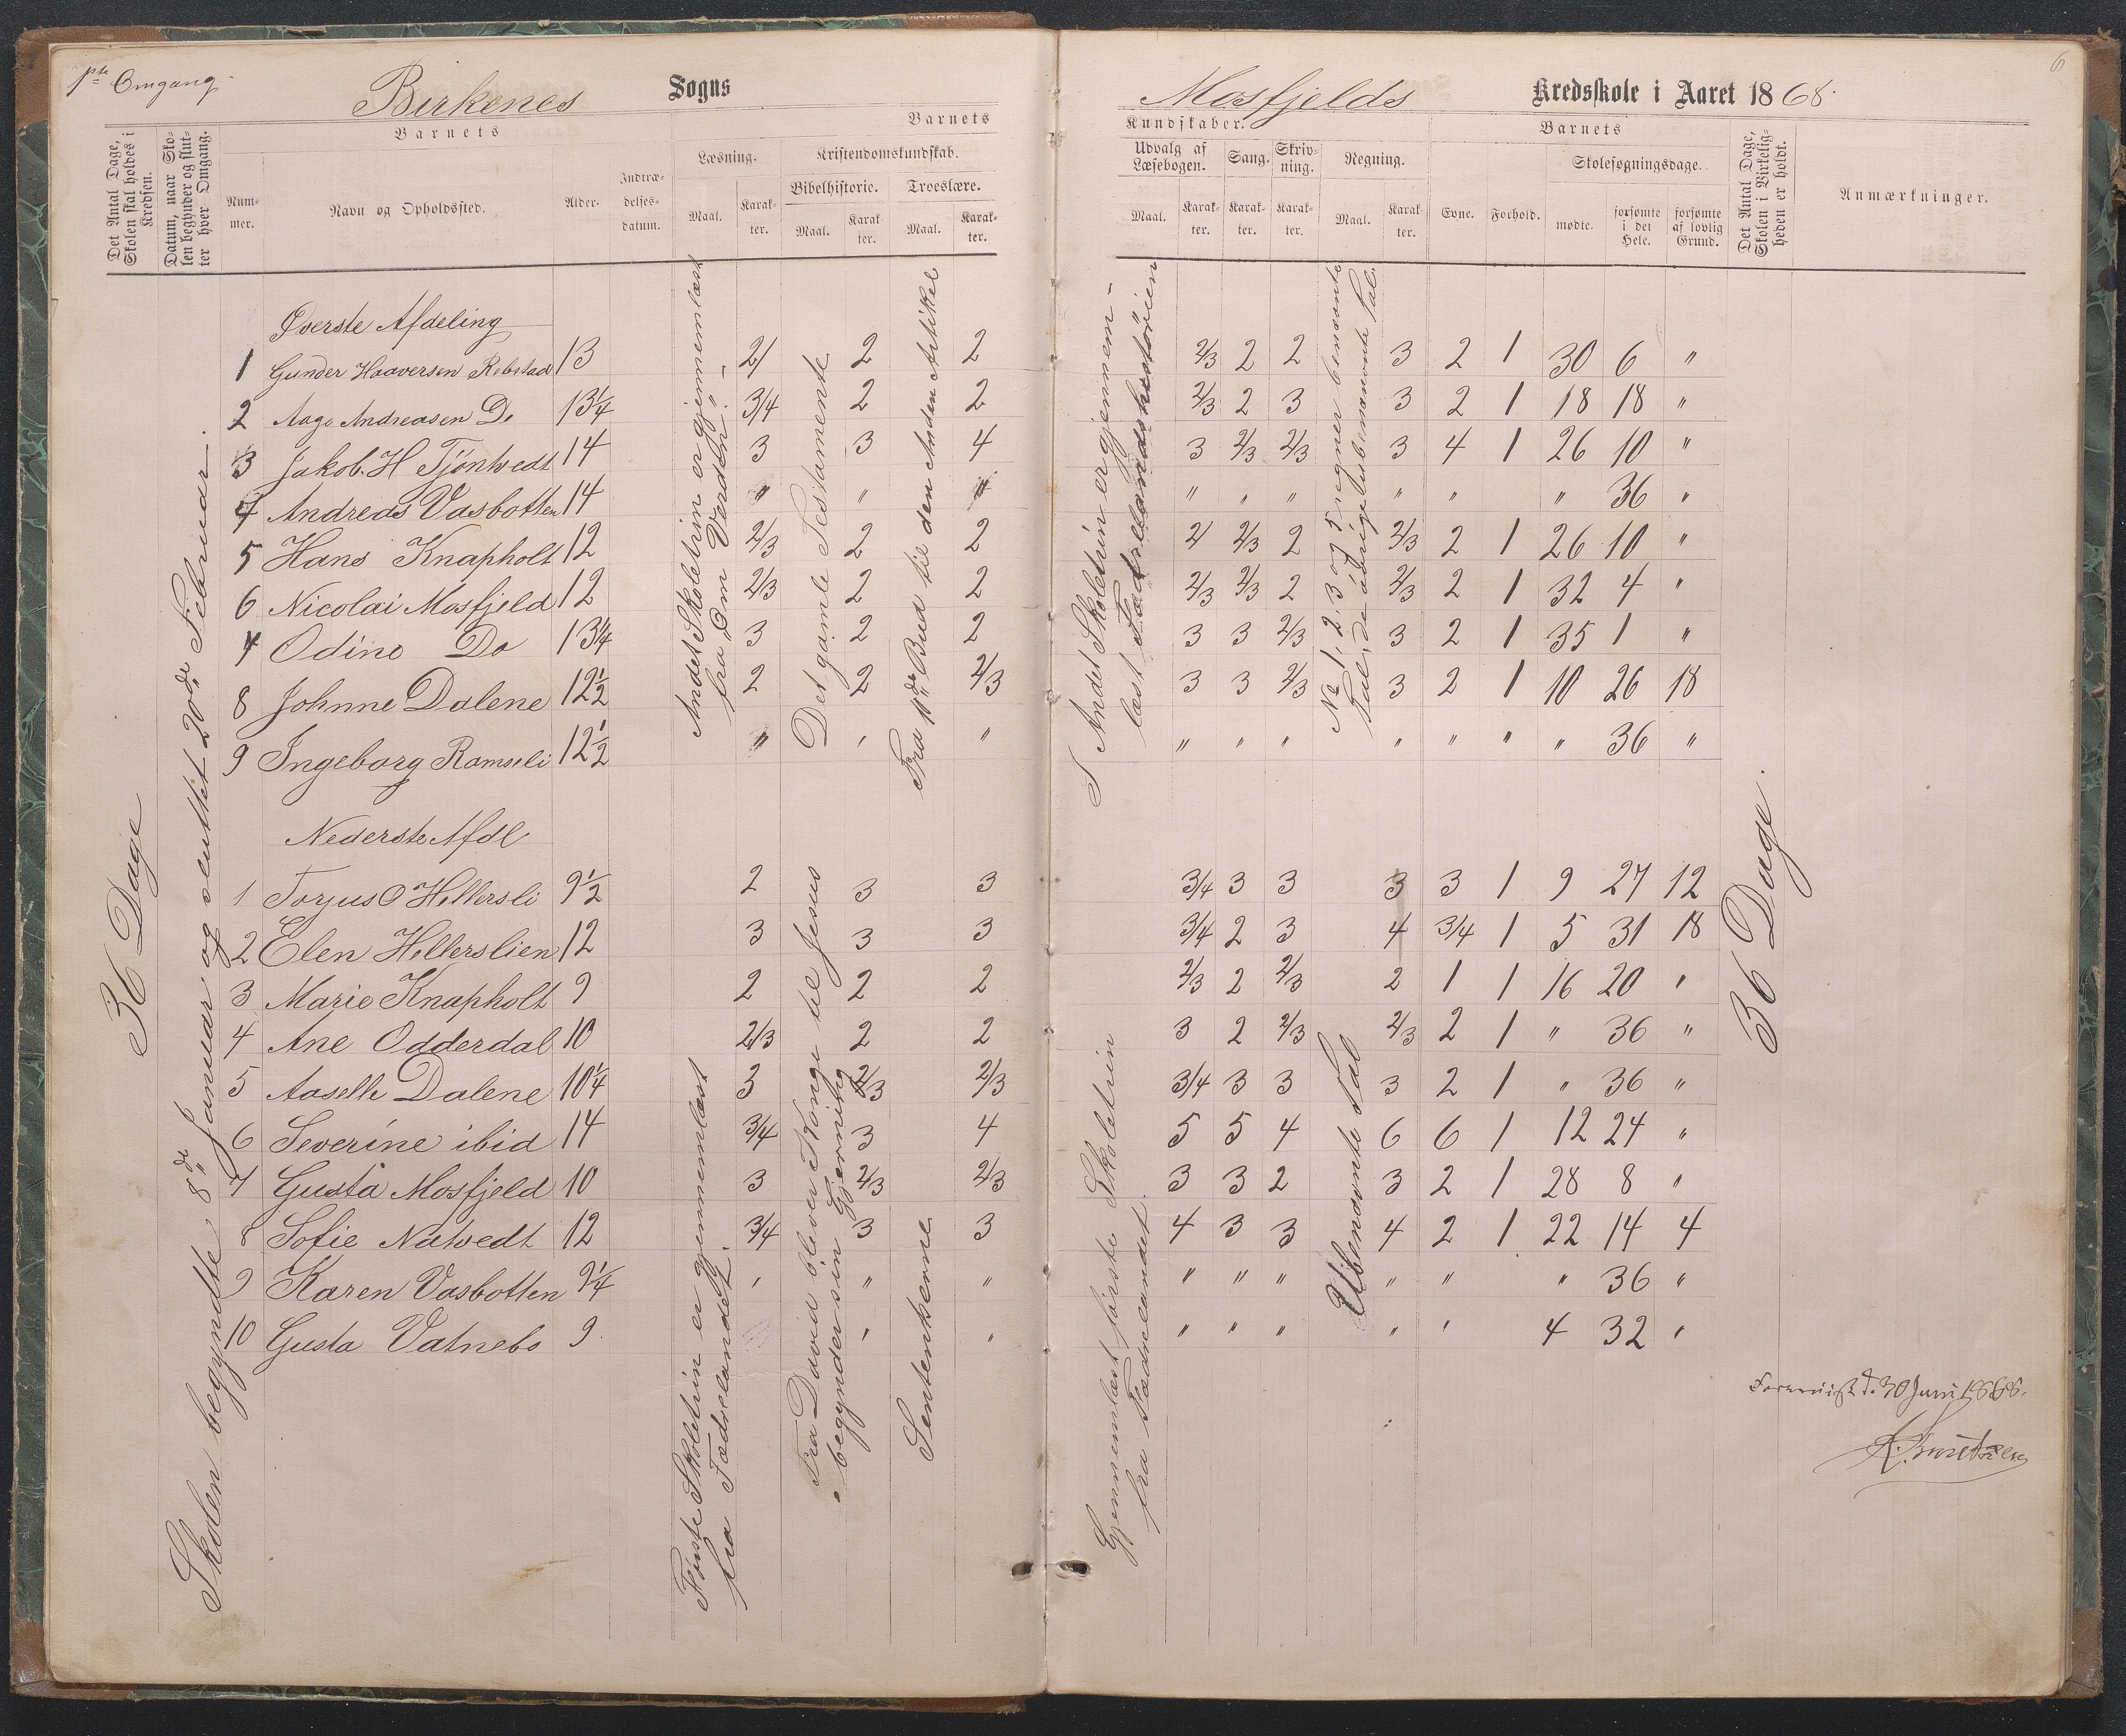 1ste Omgang.
Birkenes Sogns
Mosfjelds Kredsskole i Aaret 1868.
6
Det Antal Dage, Skolen skal holdes i Kredsen.
Datum, naar Skolen begynder og slutter hver Omgang.
Barnets
Nummer.
Navn og Opholdssted.
Alder.
Indtrædelsesdatum.
Barnets
Læsning.
Maal.
Karakter.
Kristendomskundskab.
Bibelhistorie.
Maal.
Karakter.
Troeslære.
Maal.
Karakter.
Kundskaber.
Udvalg af Læsebogen.
Maal.
Karakter.
Sang.
Karakter.
Skrivning.
Karakter.
Regning.
Maal.
Karakter.
Barnets
Evne.
Forhold.
Skolesøgningsdage.
mødte.
forsømte i det Hele.
forsømte af lovlig Grund.
Det Antal Dage, Skolen i Virkeligheden er holdt.
Anmærkninger.
36 Dage
Skolen begyndte 8de Januar og sluttet 20de Februar.
Øverste Afdeling
1 Gunder Haaversen Rebstad 13 2/ 2 2 2/3 2 2 3 2 1 30 6 "
2 Aage Andreasen Do 13 1/4 3/4 2 2 2/3 2 3 3 2 1 18 18 "
3 Jakob. H Tjöntvedt 14 3 3 4 3 2/3 2/3 3 4 1 26 10 "
4 Andreas Vasbotten 14 " " " " " " " " " 36 "
5 Hans Knapholt 12 2/3 2 2 2/ 2/3 2 2/3 2 1 26 10 "
6 Nicolai Mosfjeld 12 2/3 2 2 2/3 2/3 2 2/3 2 1 32 4 "
7 Odine Do 13 1/4 3 2 2 3 3 2/3 3 2 1 35 1 "
8 Johnne Dalene 12 1/2 2 2 2/3 3 3 2/3 3 2 1 10 26 18
9 Ingeborg Ramseli 12 1/2 " " " " " " " " " " 36 "
Andet Skoletrin er gjennemlæst
fra "Om Verden". –
Det gamle Testamente
Fra 11de Bud til den Anden Artikel
I Andet Skoletrin er gjennem-
læst Fædrelandshistörien
No 1, 2, 3 og 5 regner benævnte
Tal, de övrige ubenævnte Tal.
Nederste Afdl
1 Torjus O Hellersli 9 1/2 2 3 3 3/4 3 3 3 3 1 9 27 12
2 Elen Hellerslien 12 3 3 3 3/4 2 3 4 3/4 1 5 31 18
3 Marie Knapholt 9 2 2 2 2/3 2 2/3 2 1 1 16 20 "
4 Ane Odderdal 10 2/3 2 2 3 2 2/3 2/3 2 1 " 36 "
5 Aaselle Dalene 10 1/4 3 2/3 2/3 3/4 3 3 3 2 1 " 36 "
6 Severine ibid 14 3/4 3 4 5 5 4 6 6 1 12 24 "
7 Gusta Mosfjeld 10 3 2/3 2/3 3 3 2 3 2 1 28 8 "
8 Sofie Natvedt 12 3/4 3 3 4 3 3 4 2 1 22 14 4
9 Karen Vasbotten 9 1/4 " " " " " " " " " 36 "
10 Gusta Vatnebo 9 " " " " " " " 4 32 "
Første Skoletrin er gjennemlæst
fra Fædrelandet.
Fra David bliver Konge til Jesus
begynder sin Gjerning
Sentenkserne
Gjennemlæst første Skoletrin
fra Fædrelandet.
Ubenævnte Tal
36 Dage.
d. 30 Juni 1868.